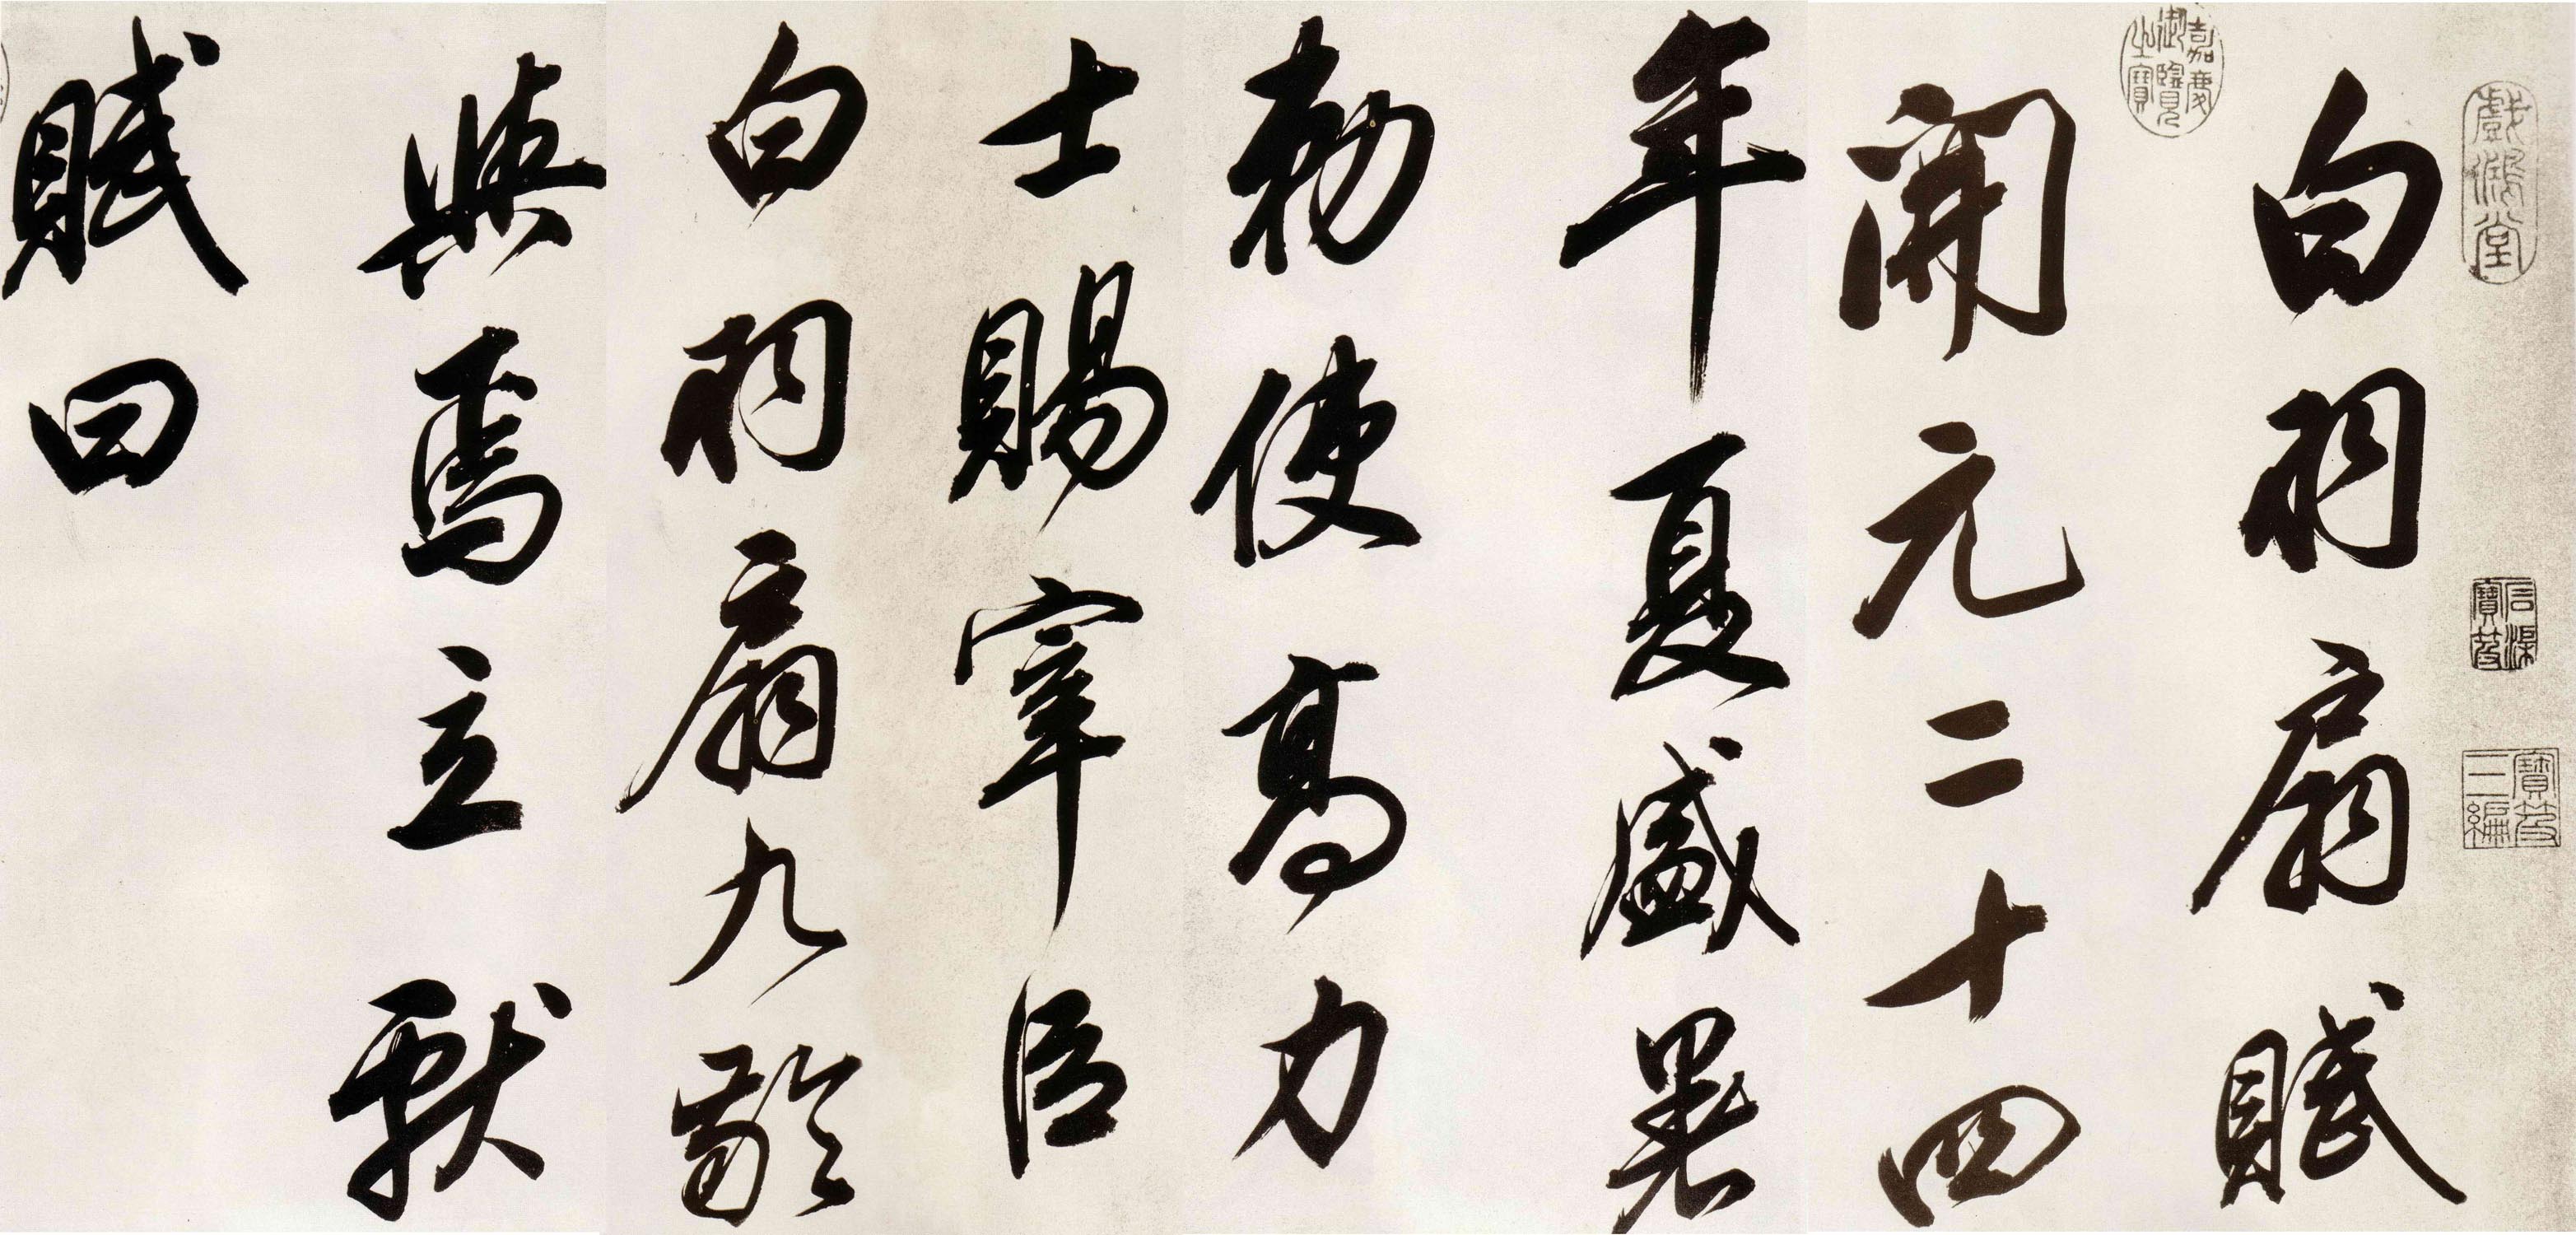 戲鴻堂
石渠寶笈
寶笈三編
白羽扇賦
嘉慶御覽之寶
開元二十四
年夏盛暑
勅使高力
士賜宰臣
白羽扇九齡
與焉立獻
賦曰